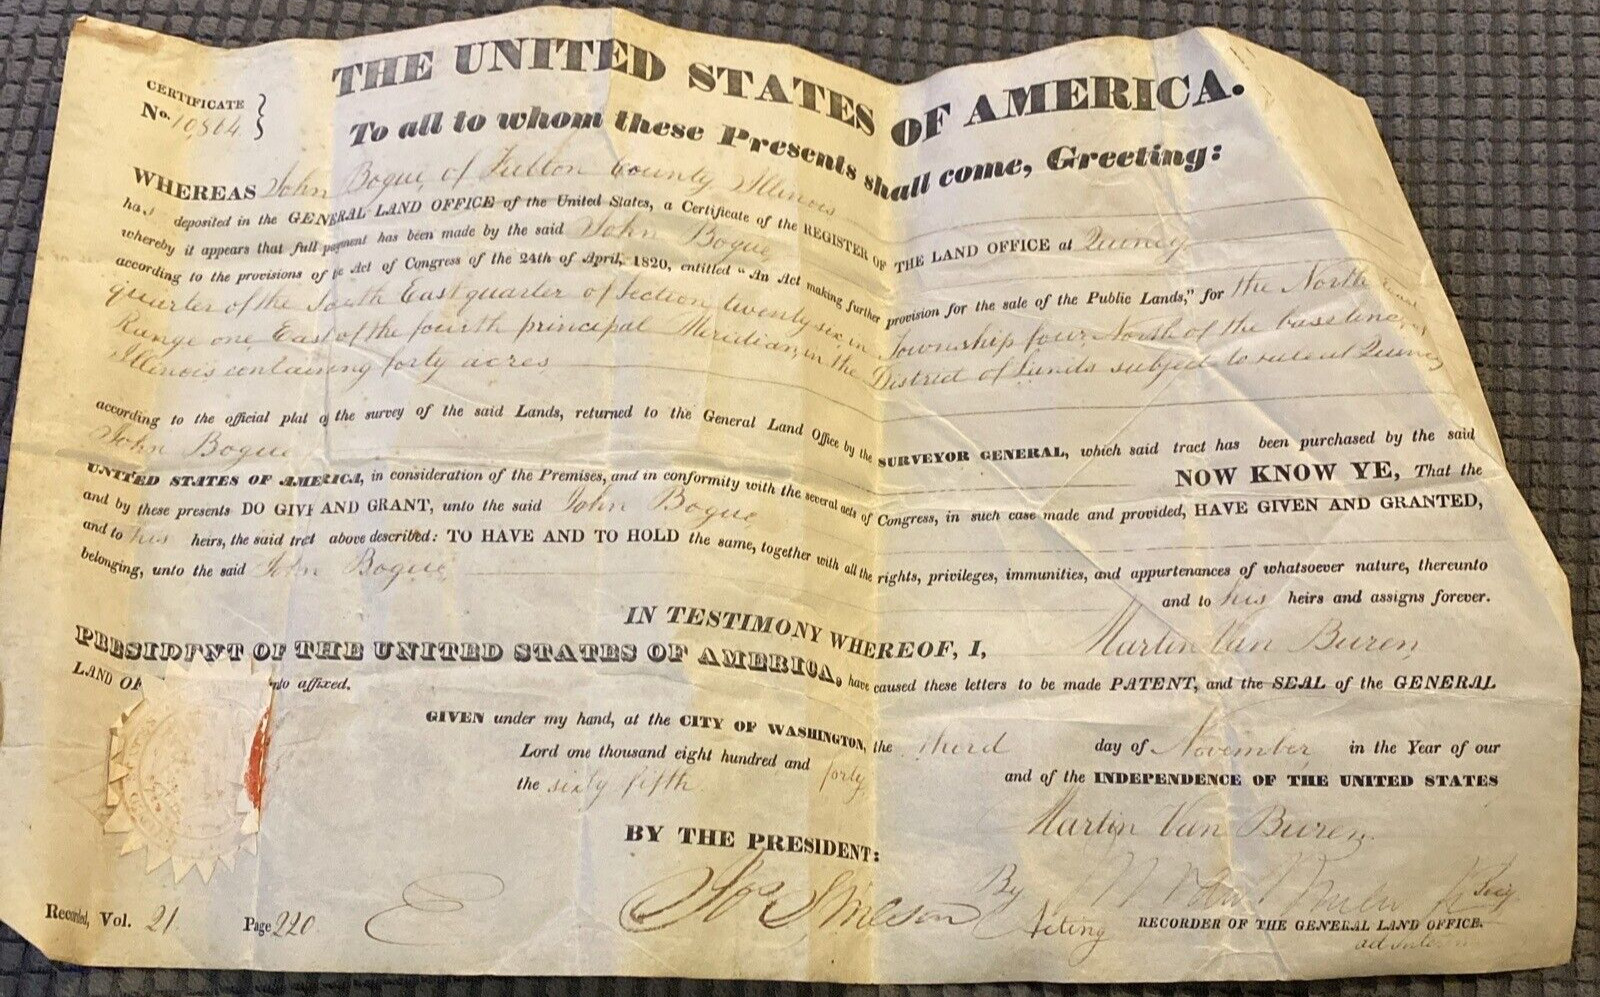 THE UNITED STATES OF AMERICA.
CERTIFICATE
No. 10,864
To all to whom these Presents shall come, Greeting:
WHEREAS John Bogue, of Fulton County Illinois
has deposited in the GENERAL LAND OFFICE of the United States, a Certificate of the REGISTER OF THE LAND OFFICE at Quincy
whereby it appears that full payment has been made by the said John Bogue,
according to the provisions of the Act of Congress of the 24th of April, 1820, entitled "An Act making further provision for the sale of the Public Lands," for the North
quarter of the South East quarter of Section twenty six, in Township four North of the base line,
Range one East of the fourth principal Meridian, in the District of Lands subject to sale at Quincy
Illinois containing forty acres
according to the official plat of the survey of the said Lands, returned to the General Land Office by the SURVEYOR GENERAL, which said tract has been purchased by the said
John Bogue
NOW KNOW YE, That the
UNITED STATES OF AMERICA, in consideration of the Premises, and in conformity with the several acts of Congress, in such case made and provided, HAVE GIVEN AND GRANTED,
and by these presents DO GIVE AND GRANT, unto the said John Bogue,
and to his heirs, the said tract above described: TO HAVE AND TO HOLD the same, together with all the rights, privileges, immunities, and appurtenances of whatsoever nature, thereunto
belonging, unto the said John Bogue, and to his heirs and assigns forever.
IN TESTIMONY WHEREOF, I, Martin Van Buren,
PRESIDENT OF THE UNITED STATES OF AMERICA, have caused these letters to be made PATENT, and the SEAL of the GENERAL
LAND OF nto affixed.
GIVEN under my hand, at the CITY OF WASHINGTON, the third day of November in the Year of our
Lord one thousand eight hundred and forty and of the INDEPENDENCE OF THE UNITED STATES
the sixty fifth
BY THE PRESIDENT: Martin Van Buren
By M Van Buren Jr Secy
Recorded, Vol. 21 Page 220
Acting RECORDER OF THE GENERAL LAND OFFICE.
ad interim